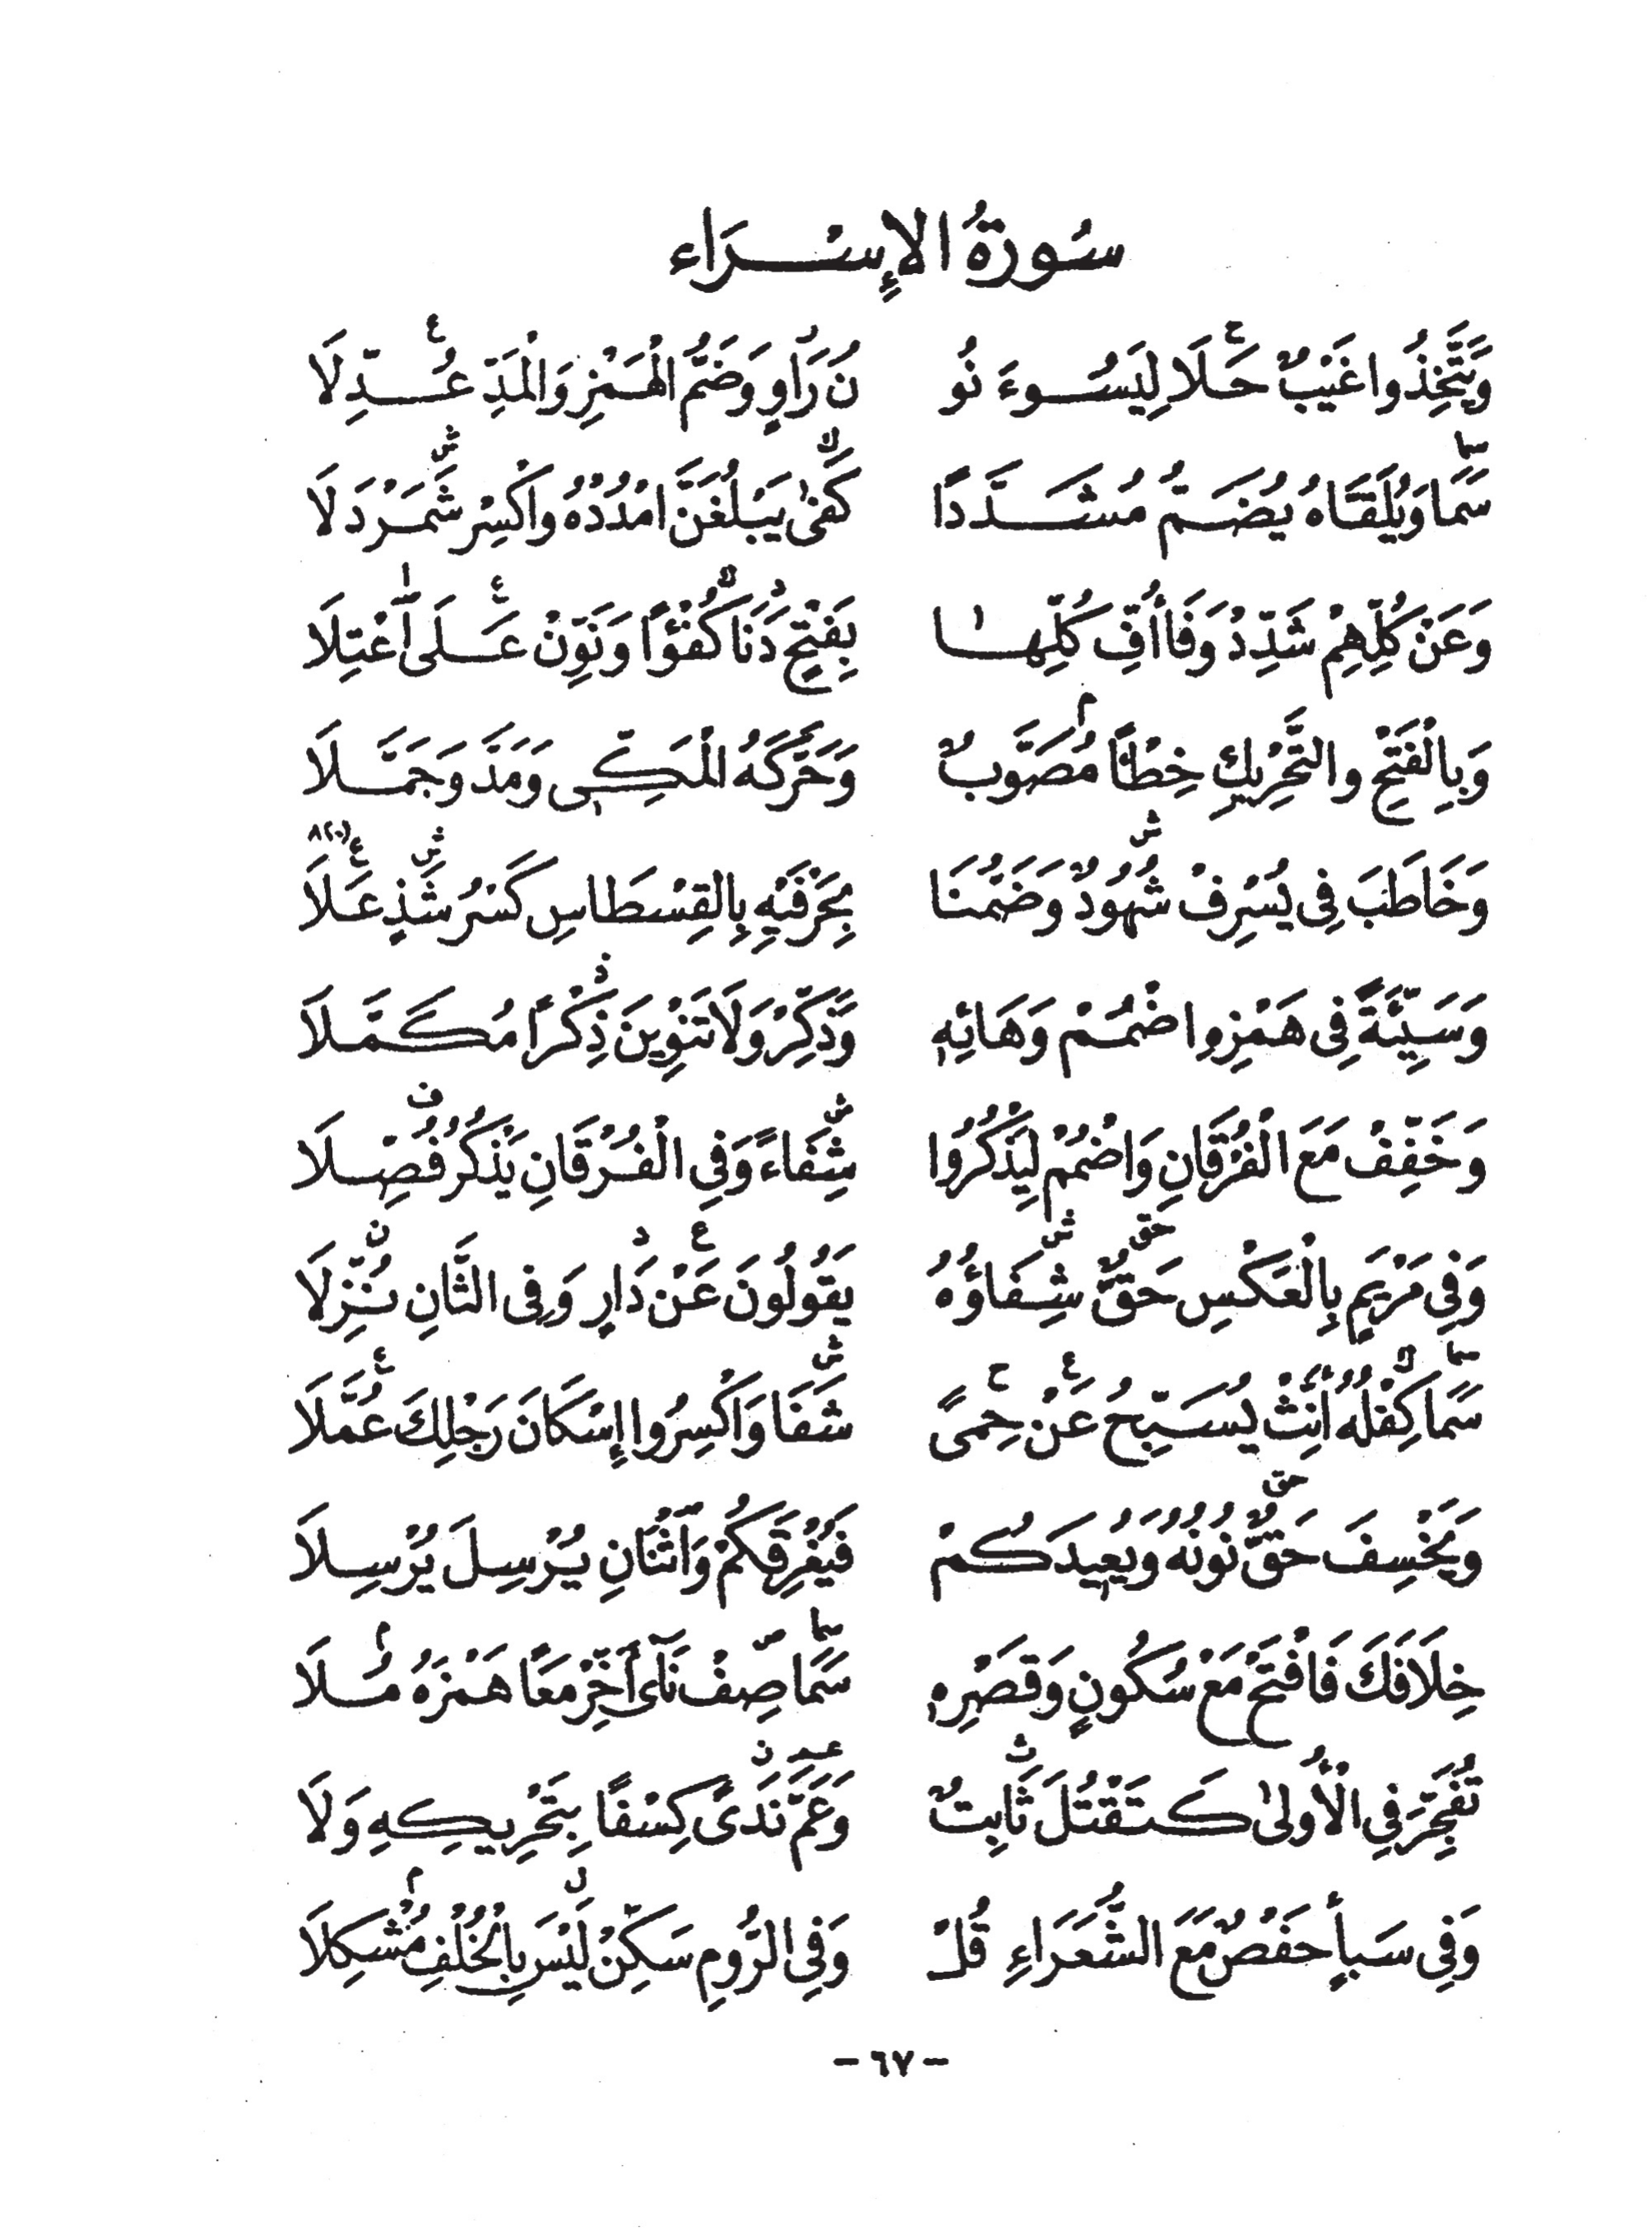 سُورَةُ الإِسْرَاء
وَيَتَّخِذُوا غَيْبٌ حَلَا لِيَسُوءَ نُو نُ رَاوٍ وَضَمُّ الْهَمْزِ وَالْمَدِّ عُدِّلَا
سَمَا وَيُلَقَّاهُ يُضَمُّ مُشَدَّدًا كَفَى يَبْلُغَنَّ امْدُدْهُ وَاكْسِرْ شَمَرْدَلَا
وَعَنْ كُلِّهِمْ شَدِّدْ وَفَا أُفِّ كُلِّهَا بِفَتْحٍ دَنَا كُفْؤًا وَنَوِّنْ عَلَى اعْتِلَا
وَبِالْفَتْحِ وَالتَّحْرِيكِ خِطْأً مُصَوَّبٌ وَحَرَّكَهُ الْمَكِّي وَمَدَّ وَجَمَّلَا
وَخَاطَبَ فِي يُسْرِفْ شُهُودٌ وَضَمُّنَا بِحَرْفَيْهِ بِالقِسْطَاسِ كَسْرُ شَذٍ عَلَا ٨٢٠
وَسَيِّئَةً فِي هَمْزِهِ اضْمُمْ وَهَائِهِ وَذَكِّرْ وَلَا تَنْوِينَ ذِكْرًا مُكَمَّلَا
وَخَفِّفْ مَعَ الْفُرْقَانِ وَاضْمُمْ لِيَذْكُرُوا شِفَاءً وَفِي الْفُرْقَانِ يَذْكُرُ فُصِّلَا
وَفِي مَرْيَمٍ بِالْعَكْسِ حَقٌّ شِفَاؤُهُ يَقُولُونَ عَنْ دَارٍ وَفِي الثَّانِ نُزِّلَا
سَمَا كِفْلُهُ أَنِّثْ يُسَبِّحُ عَنْ حِمًى شَفَا وَاكْسِرُوا إِسْكَانَ رَجْلِكَ عُمَّلَا
وَيَخْسِفَ حَقٌّ نُونُهُ وَيُعِيدَكُمْ فَيُغْرِقَكُمْ وَاثْنَانِ يُرْسِلَ يُرْسِلَا
خِلَافَكَ فَافْتَحْ مَعْ سُكُونٍ وَقَصْرِهِ سَمَا صِفْ نَآى أَخِّرْ مَعًا هَمْزَهُ مُلَا
تُفَجِّرَ فِي الْأُولَى كَتَقْتُلَ ثَابِتٌ وَعَمَّ نَدًى كِسْفًا بِتَحْرِيكِهِ وَلَا
وَفِي سَبَأٍ حَفْصٌ مَعَ الشُّعَرَاءِ قُلْ وَفِي الرُّومِ سَكِّنْ لَيْسَ بِالْخُلْفِ مُشْكِلَا
- ٦٧ -